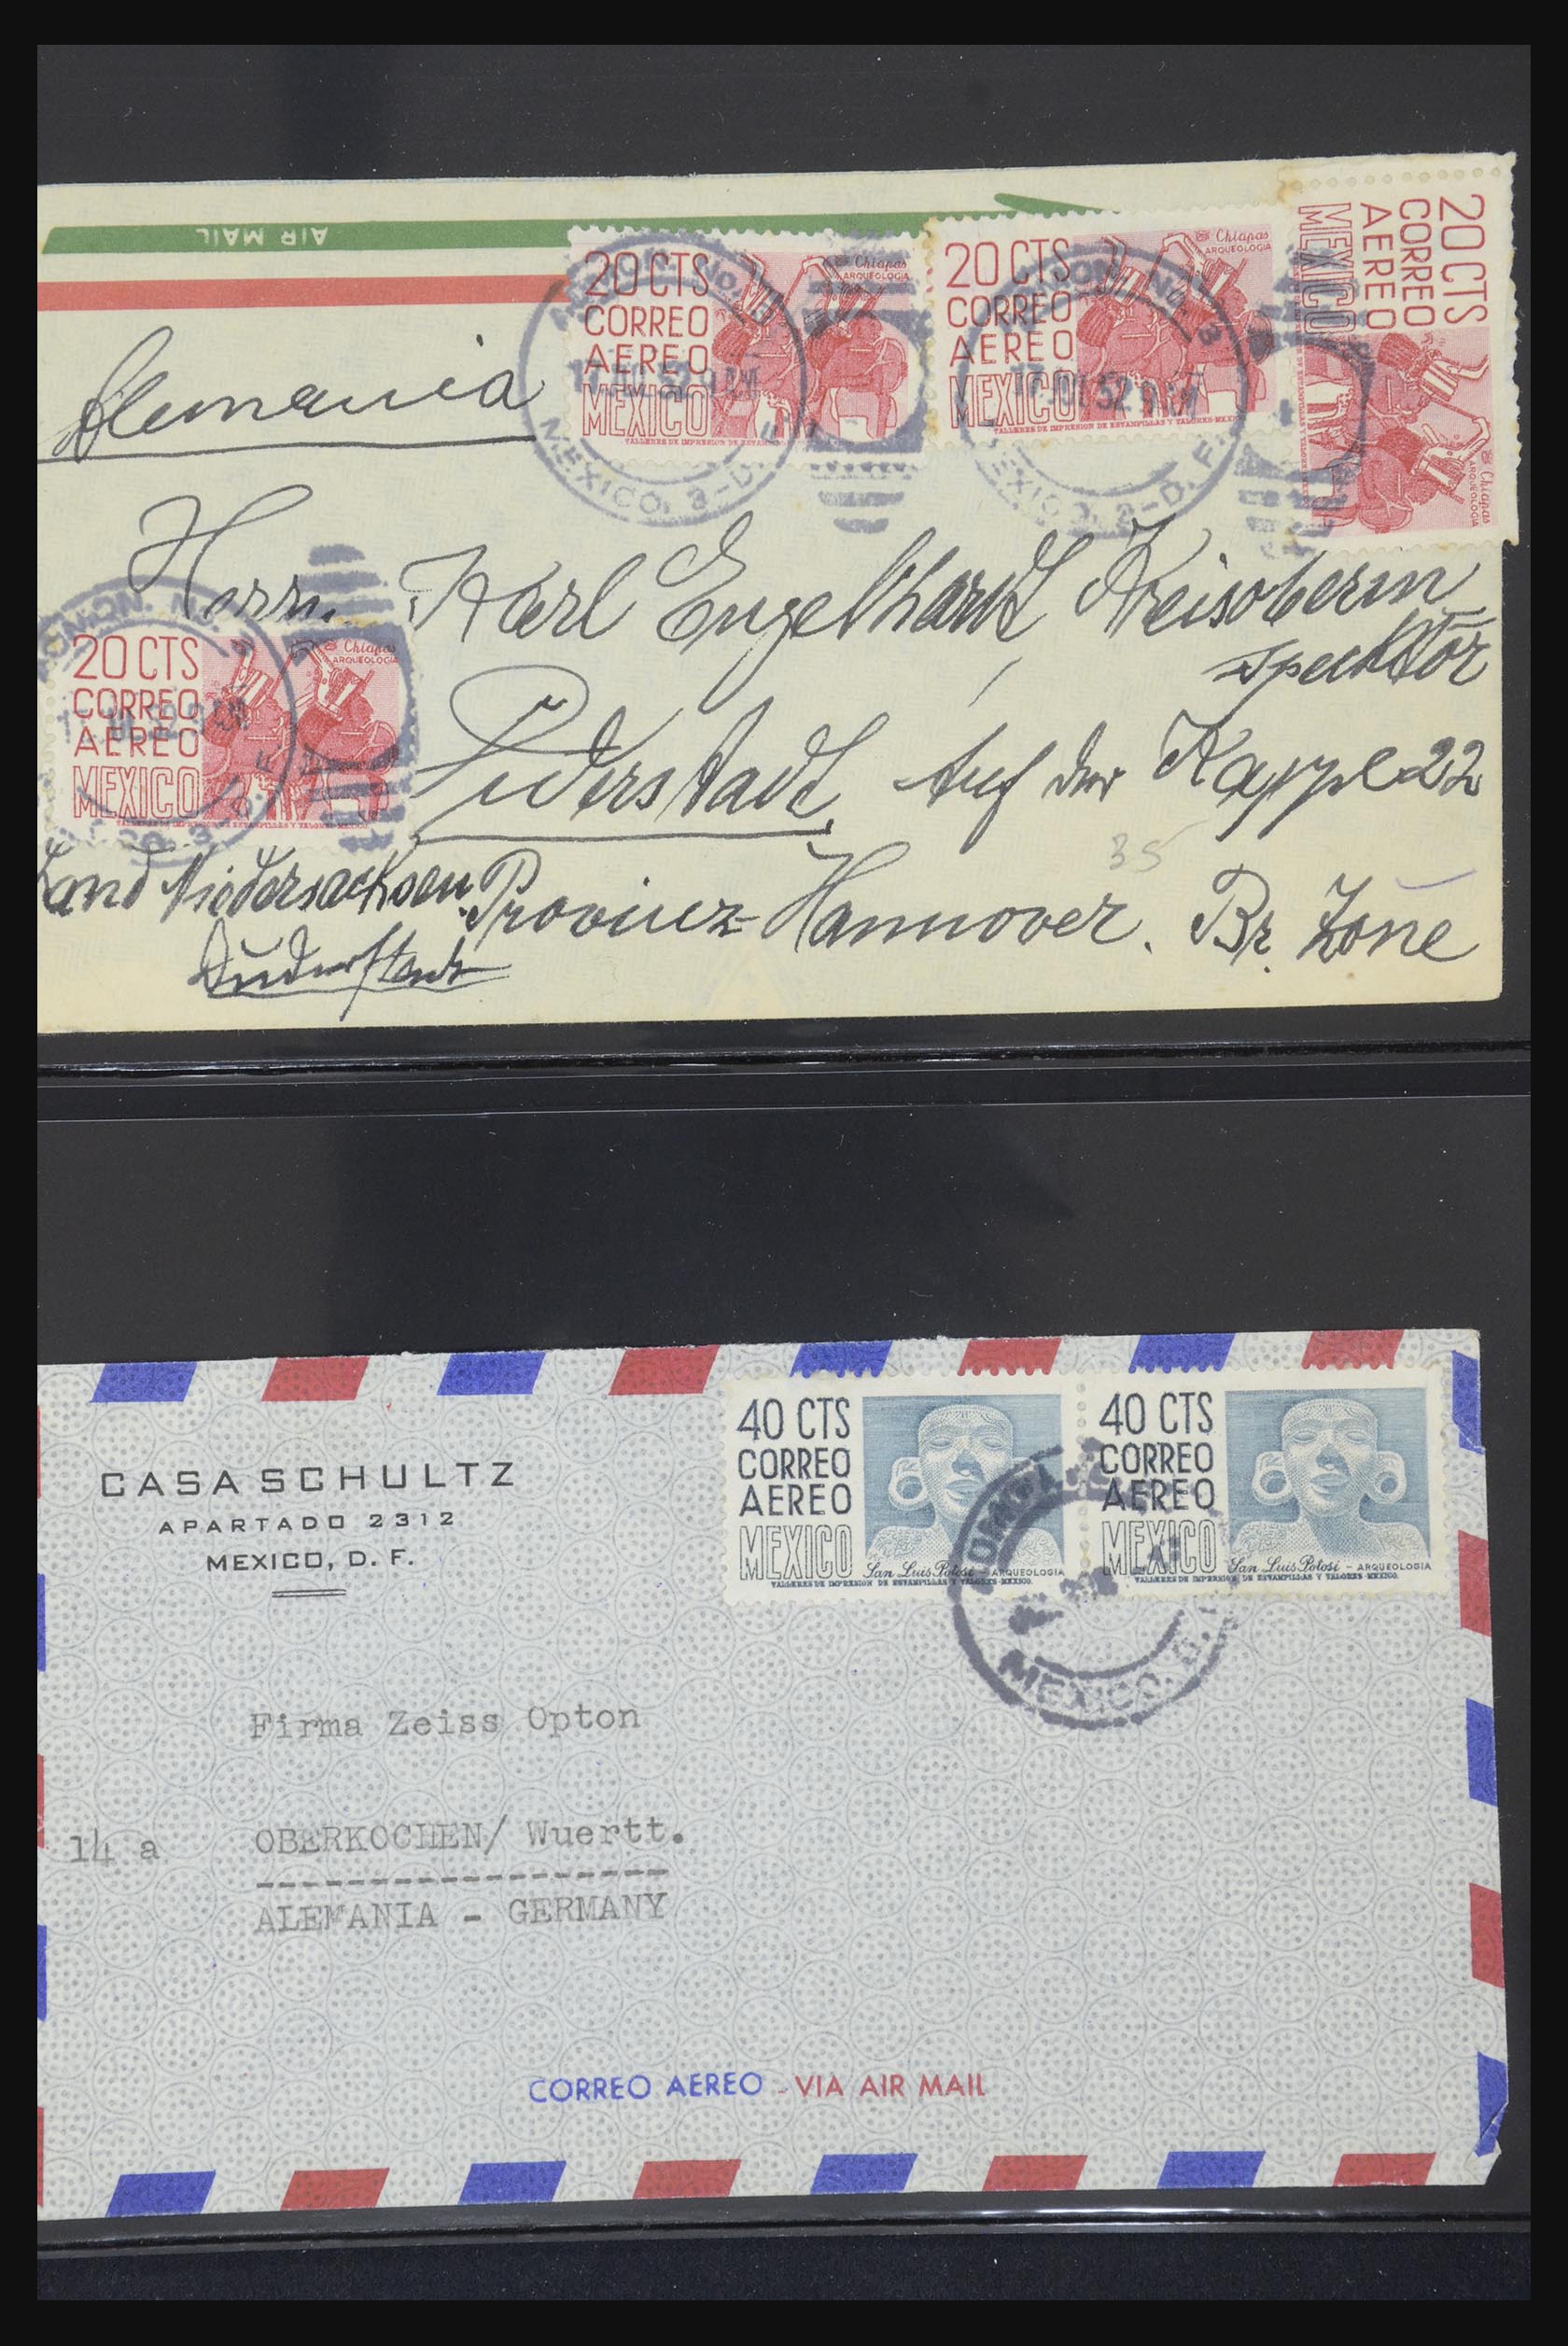 AIR MAIL
20 CTS
CORREO
AEREO
MEXICO
Chiapas
ARQUEOLOGIA
TALLERES DE IMPRESION DE ESTAMPILLAS Y VALORES-MEXICO
20 CTS
CORREO
AEREO
MEXICO
Chiapas
ARQUEOLOGIA
TALLERES DE IMPRESION DE ESTAMPILLAS Y VALORES-MEXICO
20 CTS
CORREO
AEREO
MEXICO
Chiapas
ARQUEOLOGIA
MEXICO. 3-D. F.
Alemania
Herrn. Karl Engelhardt Kreisoberin
spektor
20 CTS
CORREO
AEREO
MEXICO
Chiapas
ARQUEOLOGIA
Duderstadt, Auf der Kappe 22
35
Land Niedersachsen. Provinz Hannover. Br. Zone
Duderstadt
CASA SCHULTZ
APARTADO 2312
MEXICO, D. F.
40 CTS
CORREO
AEREO
MEXICO
San Luis Potosí - ARQUEOLOGIA
TALLERES DE IMPRESION DE ESTAMPILLAS Y VALORES-MEXICO
40 CTS
CORREO
AEREO
MEXICO
San Luis Potosí - ARQUEOLOGIA
TALLERES DE IMPRESION DE ESTAMPILLAS Y VALORES-MEXICO
MEXICO. D.
Firma Zeiss Opton
14 a OBERKOCHEN/ Wuertt.
ALEMANIA - GERMANY
CORREO AEREO - VIA AIR MAIL